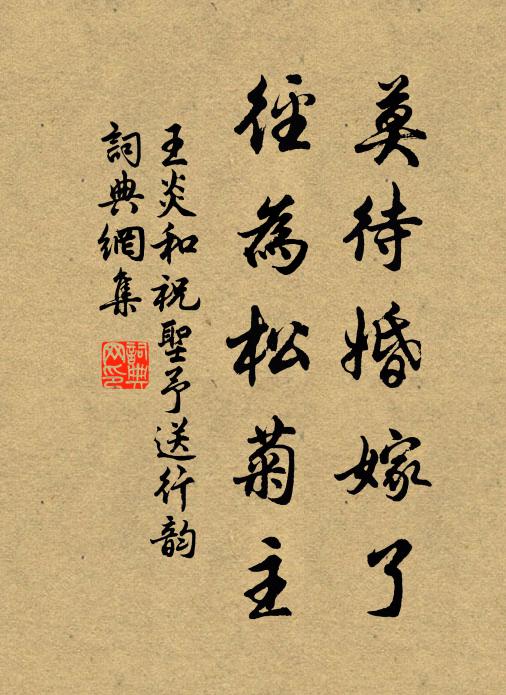 莫待婚嫁了
徑為松菊主
王炎和祝聖予送行韵
詞典網集
詞典网印